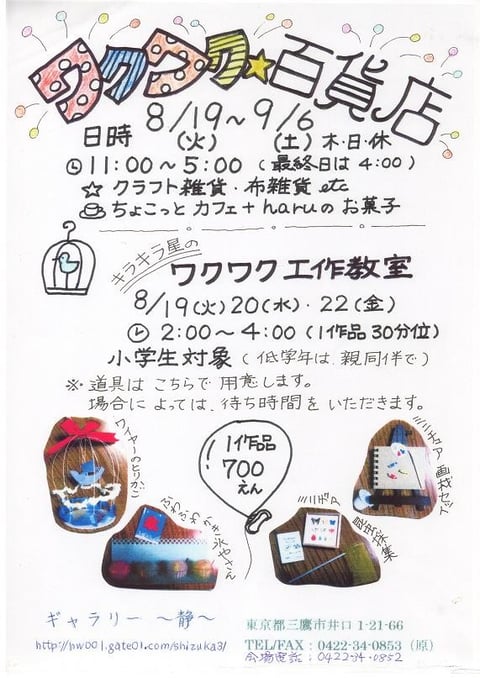 ワクワク☆百貨店
日時 8/19(火)～9/6(土) 木・日・休
11:00～5:00 (最終日は 4:00)
☆ クラフト雑貨・布雑貨 etc
ちょこっと カフェ+haruの お菓子
キラキラ星の
ワクワク工作教室
8/19(火)20(水)・22(金)
2:00～4:00 (1作品30分位)
小学生対象 (低学年は、親同伴で)
※ 道具は こちらで 用意します。
場合に よっては、待ち時間を いただきます。
ワイヤーのとりかご
1作品
700
えん
ミニチュア 画材セット
ふわふわ かき氷やさん
ミニチュア
昆虫採集
ギャラリー ～静～
http://hw001.gate01.com/shizuka3/
東京都三鷹市井口 1-21-66
TEL/FAX : 0422-34-0853 (原)
会場電話 : 0422-34-0852